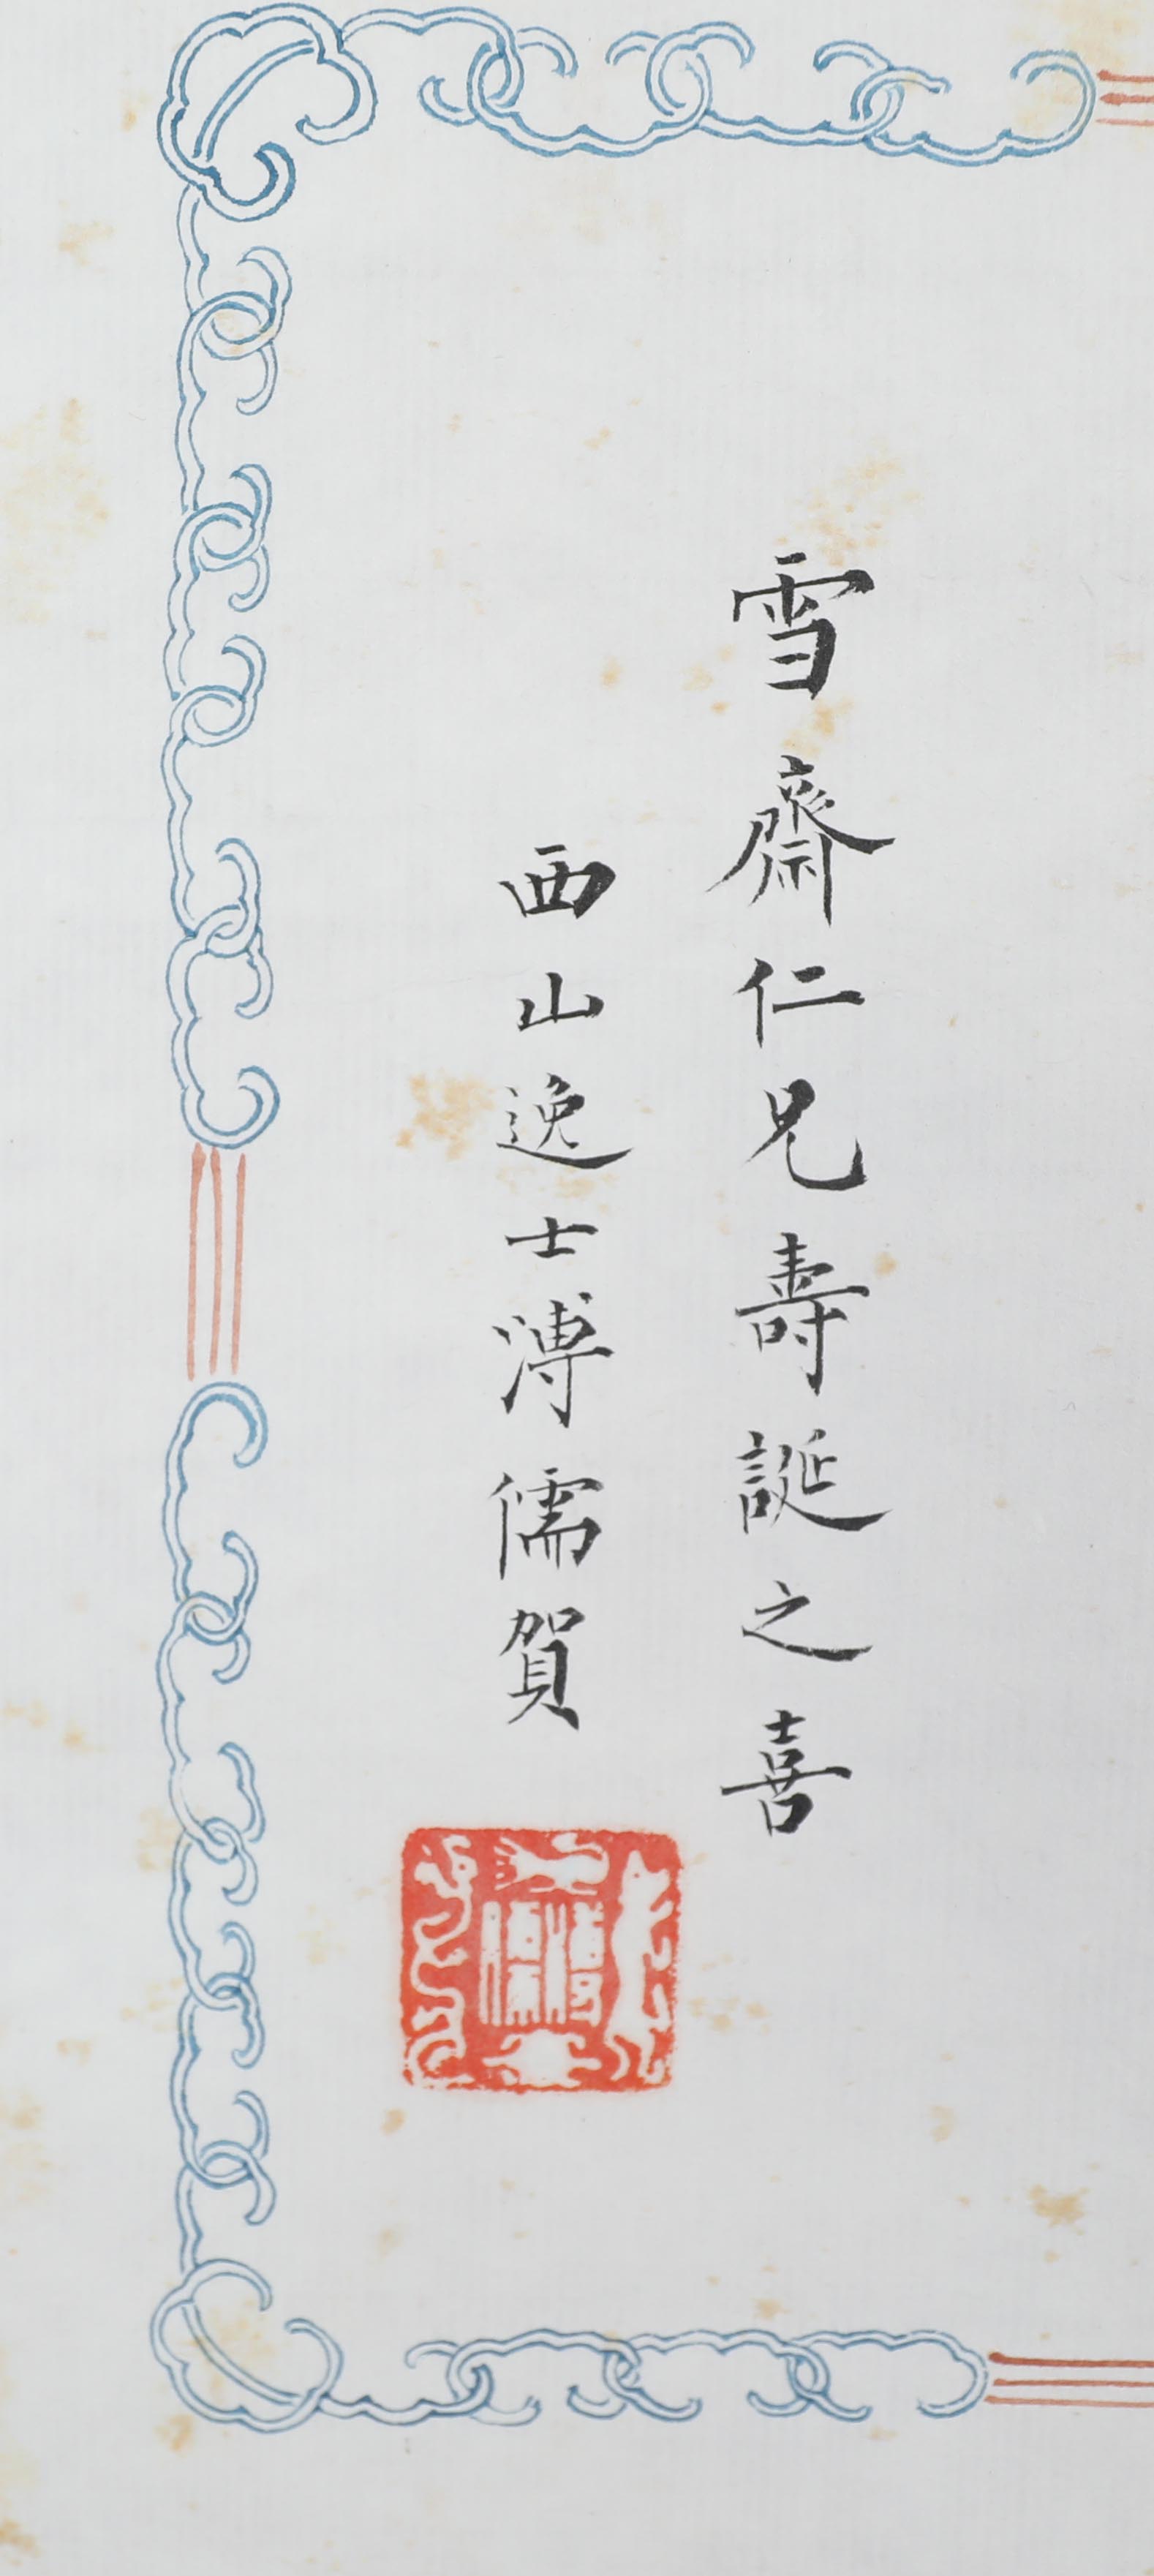 雪齋仁兄壽誕之喜
西山逸士溥儒賀
溥儒